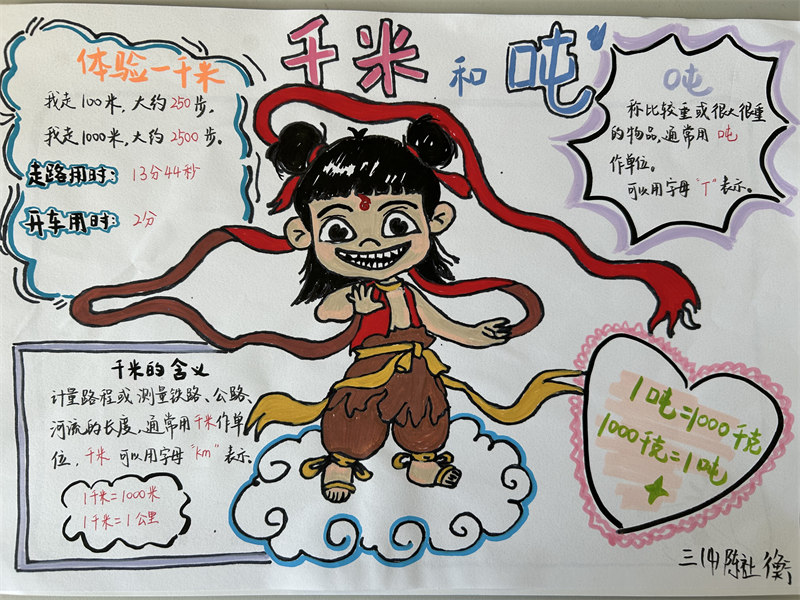 千米和吨
体验一千米
我走100米,大约250步。
我走1000米,大约2500步。
走路用时:13分44秒
开车用时:2分
吨
称比较重或很大很重
的物品,通常用 吨
作单位。
可以用字母“T”表示。
千米的含义
计量路程或测量铁路、公路、
河流的长度,通常用千米作单
位,千米 可以用字母“km”表示。
1千米=1000米
1千米=1公里
1吨=1000千克
1000千克=1吨
三(4)陈 衡